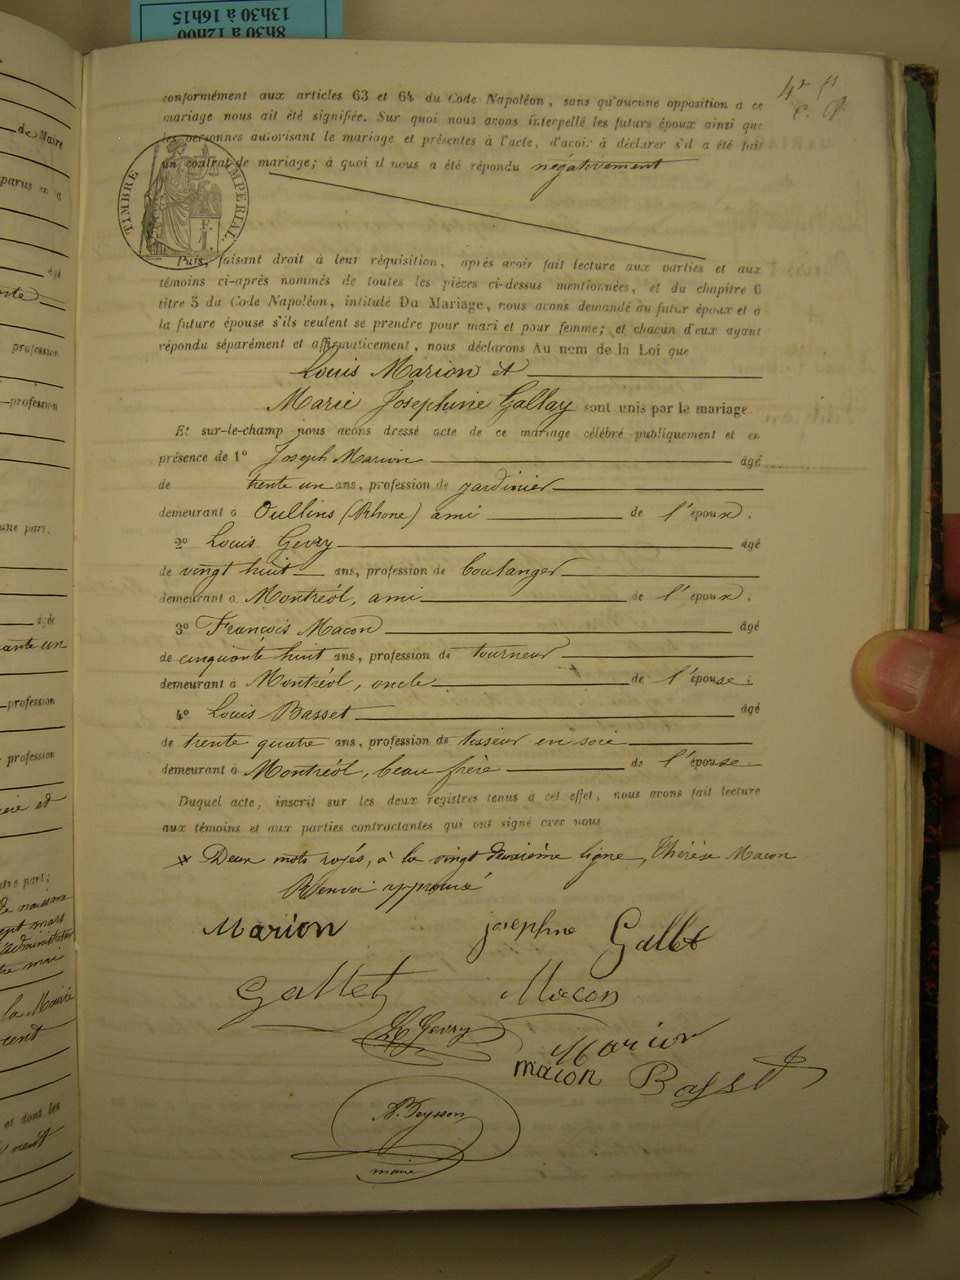 13h30 à 16h15
8h30 à 12h00
4e fl
conformément aux articles 63 et 64 du Code Napoléon, sans qu'aucune opposition a ce
mariage nous ait été signifiée. Sur quoi nous avons interpellé les futurs époux ainsi que
les personnes autorisant le mariage et présentes à l'acte, d'avoir à déclarer s'il a été fait
un contrat de mariage; à quoi il nous a été répondu négativement
TIMBRE IMPÉRIAL
Puis, faisant droit à leur réquisition, après avoir fait lecture aux parties et aux
témoins ci-après nommés de toutes les pièces ci-dessus mentionnées, et du chapitre 6
titre 5 du Code Napoléon, intitulé Du Mariage, nous avons demandé au futur époux et à
la future épouse s'ils veulent se prendre pour mari et pour femme; et chacun d'eux ayant
répondu séparément et affirmativement, nous déclarons Au nom de la Loi que
Louis Marion et
Marie Josephine Gallay sont unis par le mariage
Et sur-le-champ nous avons dressé acte de ce mariage célébré publiquement et en
présence de 1° Joseph Marion âgé
de trente un ans, profession de jardinier
demeurant à Oullins (Rhone) ami de l'époux.
2° Louis Gevry âgé
de vingt huit ans, profession de boulanger
demeurant à Montréol, ami de l'époux.
3° François Macon âgé
de cinquante huit ans, profession de tourneur
demeurant à Montréol, oncle de l'épouse.
4° Louis Basset âgé
de trente quatre ans, profession de tisseur en soie
demeurant à Montréol, beau frère de l'épouse
Duquel acte, inscrit sur les deux registres tenus à cet effet, nous avons fait lecture
aux témoins et aux parties contractantes qui ont signé avec nous
Deux mots rayés, à la vingt deuxième ligne, Thérèse Macon
Renvoi approuvé
Marion josephine Gallet
Gallet Macon
L Gevry
Marion
macon Basset
Peysson
maire
de Maire
profession
profession
une part,
âgé
profession
profession
la Mairie
et dont les